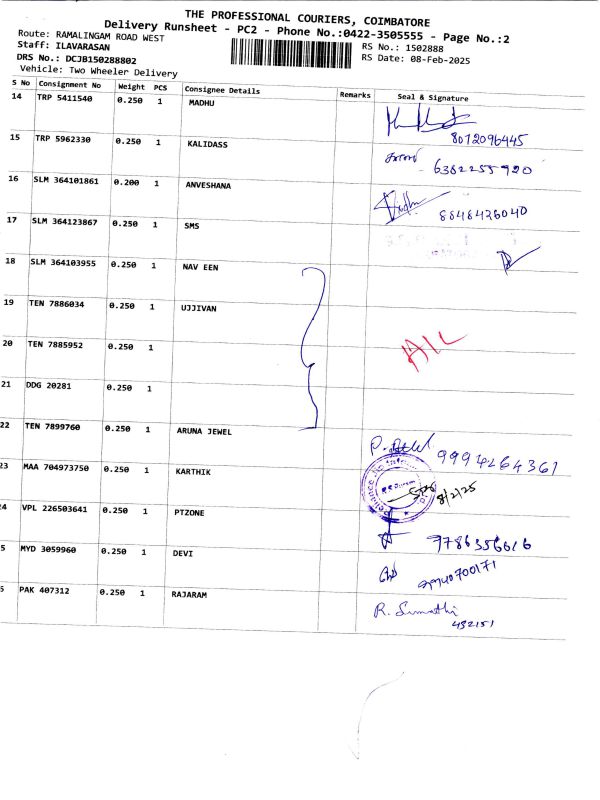 THE PROFESSIONAL COURIERS, COIMBATORE
Delivery Runsheet - PC2 - Phone No.:0422-3505555 - Page No.:2
Route: RAMALINGAM ROAD WEST
RS No.: 1502888
Staff: ILAVARASAN
RS Date: 08-Feb-2025
DRS No.: DCJB150288802
Vehicle: Two Wheeler Delivery
S No Consignment No Weight PCS Consignee Details Remarks Seal & Signature
14 TRP 5411540 0.250 1 MADHU
8072096445
15 TRP 5962330 0.250 1 KALIDASS
6382255920
16 SLM 364101861 0.200 1 ANVESHANA
8848426040
17 SLM 364123867 0.250 1 SMS
18 SLM 364103955 0.250 1 NAV EEN
19 TEN 7886034 0.250 1 UJJIVAN
20 TEN 7885952 0.250 1
21 DDG 20281 0.250 1
22 TEN 7899760 0.250 1 ARUNA JEWEL
9994264361
23 MAA 704973750 0.250 1 KARTHIK
8/2/25
24 VPL 226503641 0.250 1 PTZONE
9786356616
5 MYD 3059960 0.250 1 DEVI
PAK 407312 0.250 1 RAJARAM
R. Sumathi
432151